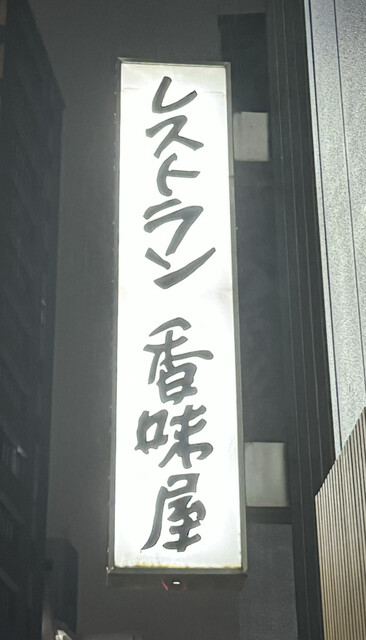 レストラン 香味屋